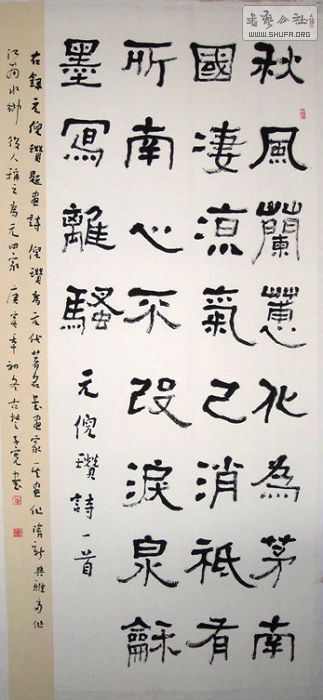 書藝公社
WWW.SHUFA.ORG
秋風蘭蕙化為茅南
國淒涼氣已消祗有
所南心不改淚泉龢
墨寫離騷 元倪瓚詩一首
右録元倪瓚題畫詩倪瓚為元代著名書畫家其畫作清新典雅多作
江南水鄉後人稱之為元四家庚寅年初冬古楚子寬書